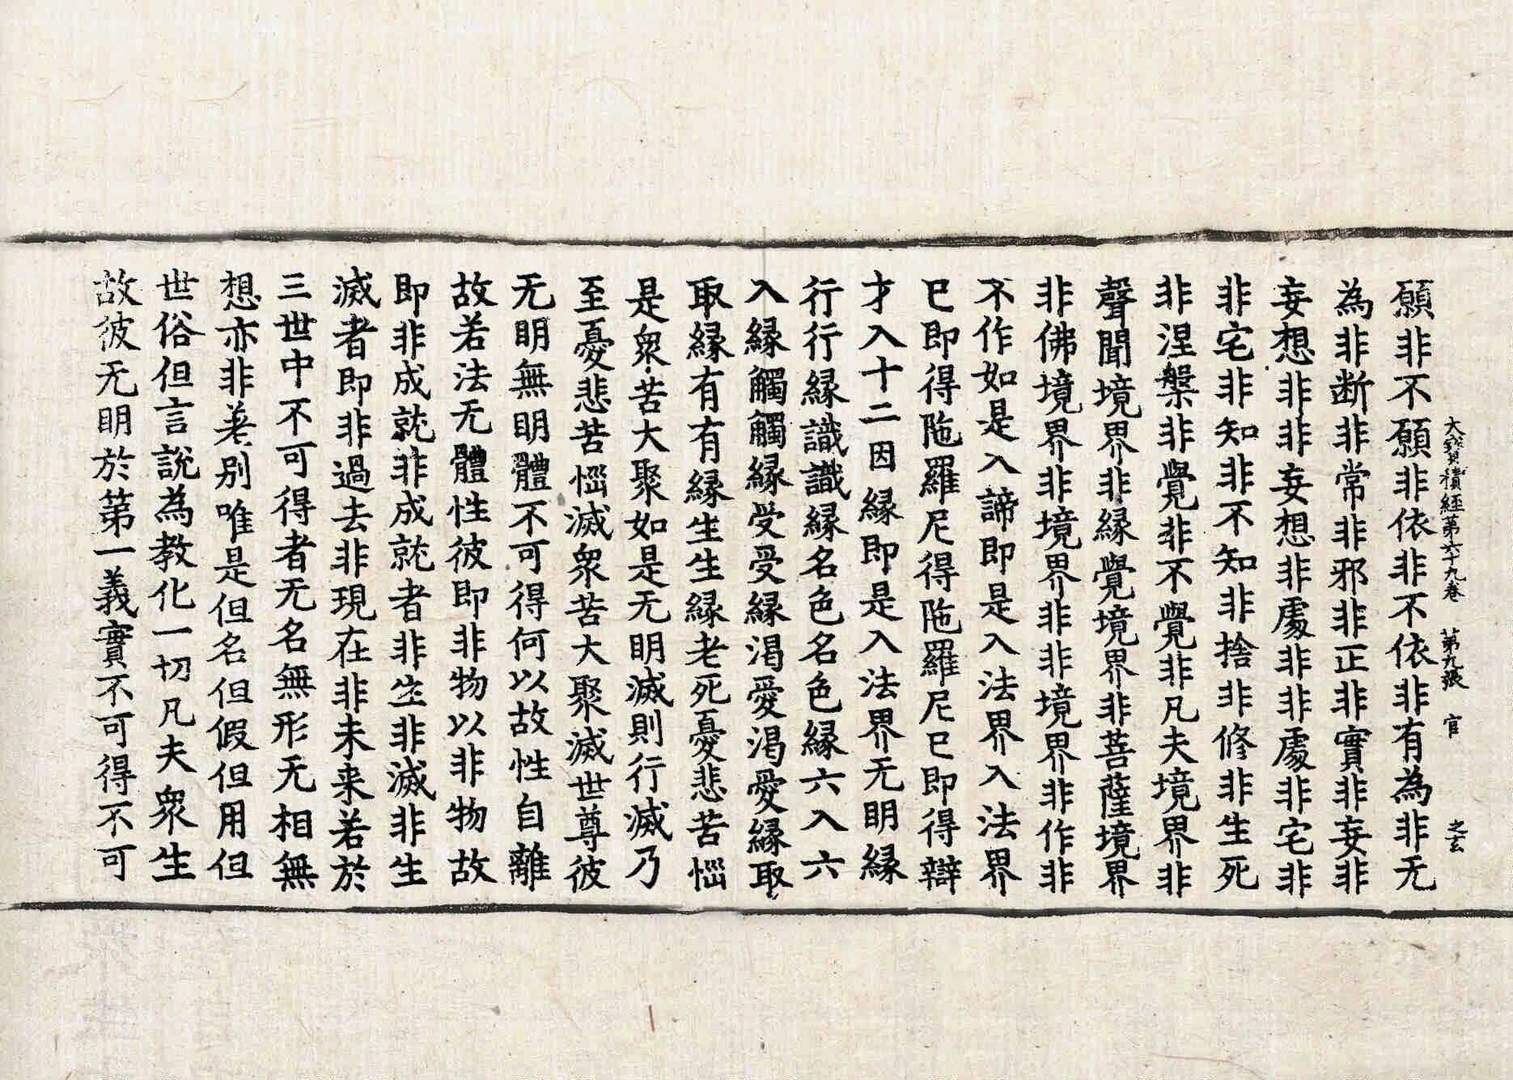 大寳積經第六十九卷 第九張 官
願非不願非依非不依非有為非无
為非斷非常非邪非正非實非妄非
妄想非非妄想非處非非處非宅非
非宅非知非不知非捨非修非生死
非涅槃非覺非不覺非凡夫境界非
聲聞境界非緣覺境界非菩薩境界
非佛境界非境界非非境界非作非
不作如是入諦即是入法界入法界
已即得陁羅尼得陁羅尼已即得辯
才入十二因縁即是入法界无明縁
行行縁識識縁名色名色縁六入六
入縁觸觸縁受受縁渴愛渴愛縁取
取縁有有縁生生縁老死憂悲苦惱
是衆苦大聚如是无明滅則行滅乃
至憂悲苦惱滅衆苦大聚滅世尊彼
无明無明體不可得何以故性自離
故若法无體性彼即非物以非物故
即非成就非成就者非生非滅非生
滅者即非過去非現在非未来若於
三世中不可得者无名無形无相無
想亦非差别唯是但名但假但用但
世俗但言說為教化一切凡夫衆生
故彼无明於第一義實不可得不可